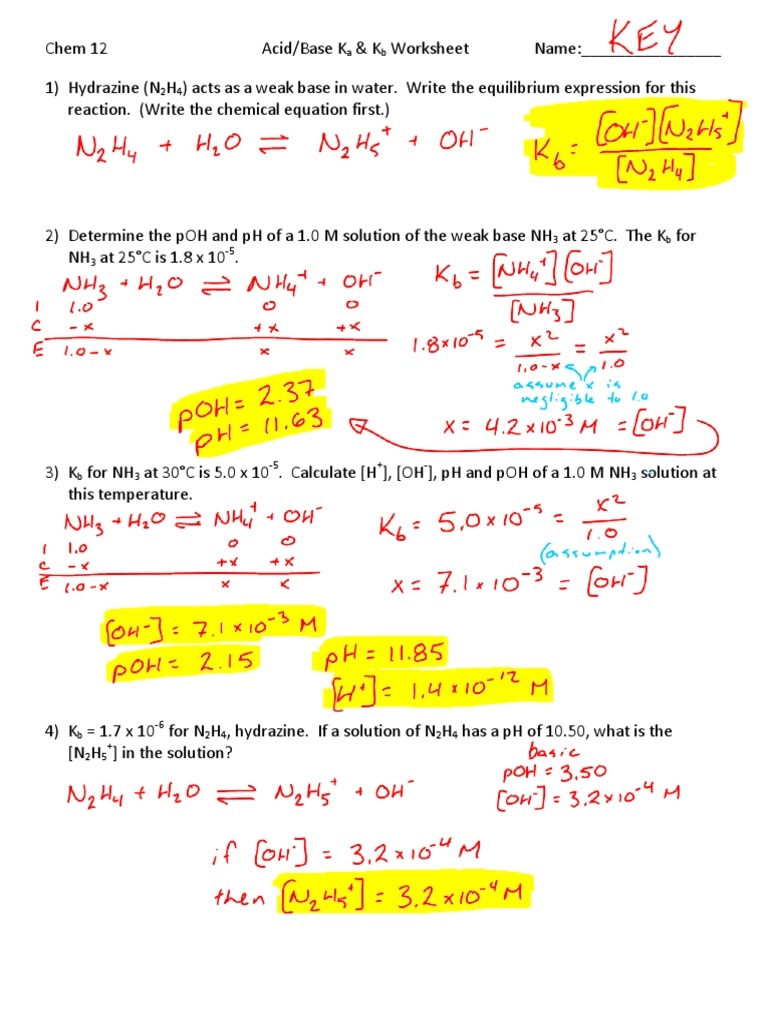 Chem 12 Acid/Base Kₐ & K_b Worksheet Name:________________ KEY
1) Hydrazine (N₂H₄) acts as a weak base in water. Write the equilibrium expression for this
reaction. (Write the chemical equation first.)
N₂H₄ + H₂O ⇌ N₂H₅⁺ + OH⁻
K_b = [OH⁻][N₂H₅⁺] / [N₂H₄]
2) Determine the pOH and pH of a 1.0 M solution of the weak base NH₃ at 25°C. The K_b for
NH₃ at 25°C is 1.8 x 10⁻⁵.
NH₃ + H₂O ⇌ NH₄⁺ + OH⁻
I 1.0 0 0
C -x +x +x
E 1.0-x x x
K_b = [NH₄⁺][OH⁻] / [NH₃]
1.8x10⁻⁵ = x² / 1.0-x = x² / 1.0
assume x is
negligible to 1.0
x = 4.2x10⁻³ M = [OH⁻]
pOH = 2.37
pH = 11.63
3) K_b for NH₃ at 30°C is 5.0 x 10⁻⁵. Calculate [H⁺], [OH⁻], pH and pOH of a 1.0 M NH₃ solution at
this temperature.
NH₃ + H₂O ⇌ NH₄⁺ + OH⁻
I 1.0 0 0
C -x +x +x
E 1.0-x x x
K_b = 5.0x10⁻⁵ = x² / 1.0
(assumption)
x = 7.1x10⁻³ = [OH⁻]
[OH⁻] = 7.1x10⁻³ M
pOH = 2.15
pH = 11.85
[H⁺] = 1.4x10⁻¹² M
4) K_b = 1.7 x 10⁻⁶ for N₂H₄, hydrazine. If a solution of N₂H₄ has a pH of 10.50, what is the
[N₂H₅⁺] in the solution?
basic
pOH = 3.50
[OH⁻] = 3.2x10⁻⁴ M
N₂H₄ + H₂O ⇌ N₂H₅⁺ + OH⁻
if [OH⁻] = 3.2x10⁻⁴ M
then [N₂H₅⁺] = 3.2x10⁻⁴ M